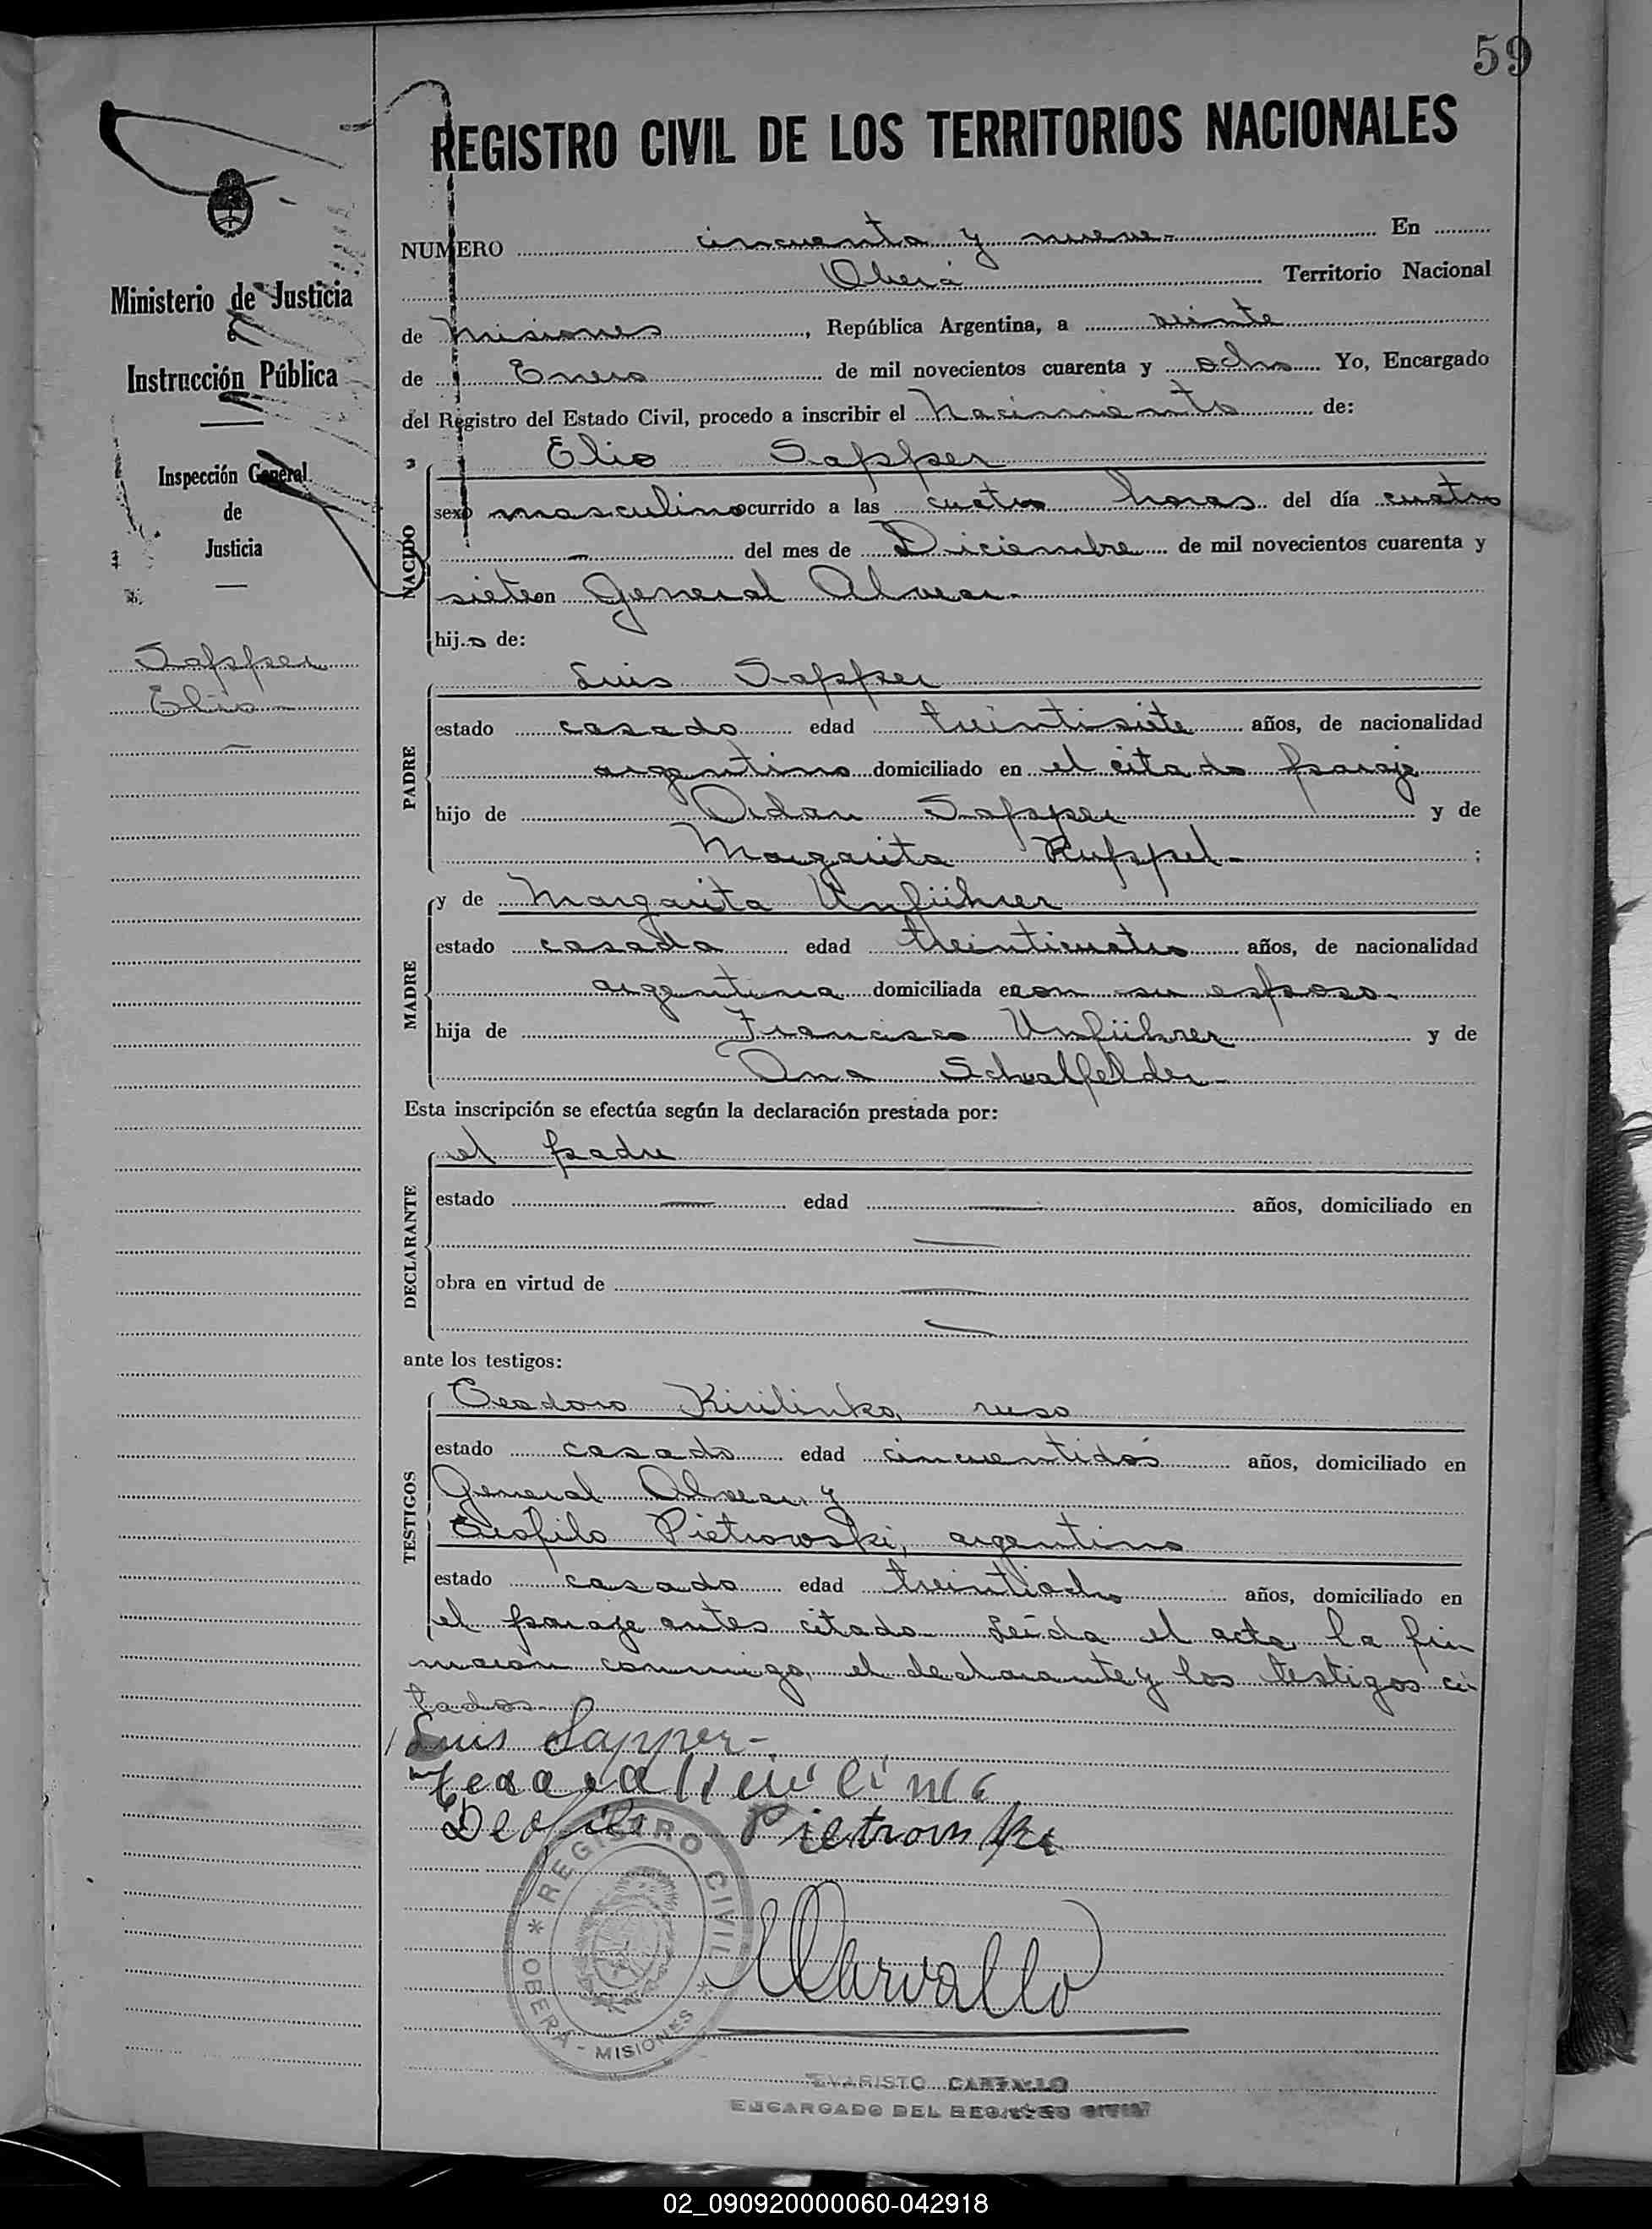 59
REGISTRO CIVIL DE LOS TERRITORIOS NACIONALES
Ministerio de Justicia
Instrucción Pública
Inspección General
de
Justicia
Sapper
Elio
NUMERO cincuenta y nueve En
Oberá Territorio Nacional
de Misiones, República Argentina, a veinte
de Enero de mil novecientos cuarenta y ocho Yo, Encargado
del Registro del Estado Civil, procedo a inscribir el Nacimiento de:
NACIDO
Elio Sapper
sexo masculino ocurrido a las cuatro horas del día cuatro
del mes de Diciembre de mil novecientos cuarenta y
siete en General Alvear
hijo de:
PADRE
Luis Sapper
estado casado edad treintisiete años, de nacionalidad
argentino domiciliado en el citado paraje
hijo de Adan Sapper y de
Margarita Ruppel ;
MADRE
y de Margarita Unführer
estado casada edad treinticuatro años, de nacionalidad
argentina domiciliada en con su esposo
hija de Francisco Unführer y de
Ana Schvalfelder
Esta inscripción se efectúa según la declaración prestada por:
DECLARANTE
el padre
estado edad años, domiciliado en
obra en virtud de
ante los testigos:
TESTIGOS
Teodoro Kirilinko, ruso
estado casado edad cincuentidós años, domiciliado en
General Alvear y
Teófilo Pietrowski, argentino
estado casado edad treintiocho años, domiciliado en
el paraje antes citado Leída el acta, la fir
maron conmigo, el declarante y los testigos ci
tados
Luis Sapper
Deofilo Pietrowski
REGISTRO CIVIL
OBERÁ - MISIONES
Carvallo
EVARISTO CARVALLO
ENCARGADO DEL REGISTRO CIVIL
02_090920000060-042918